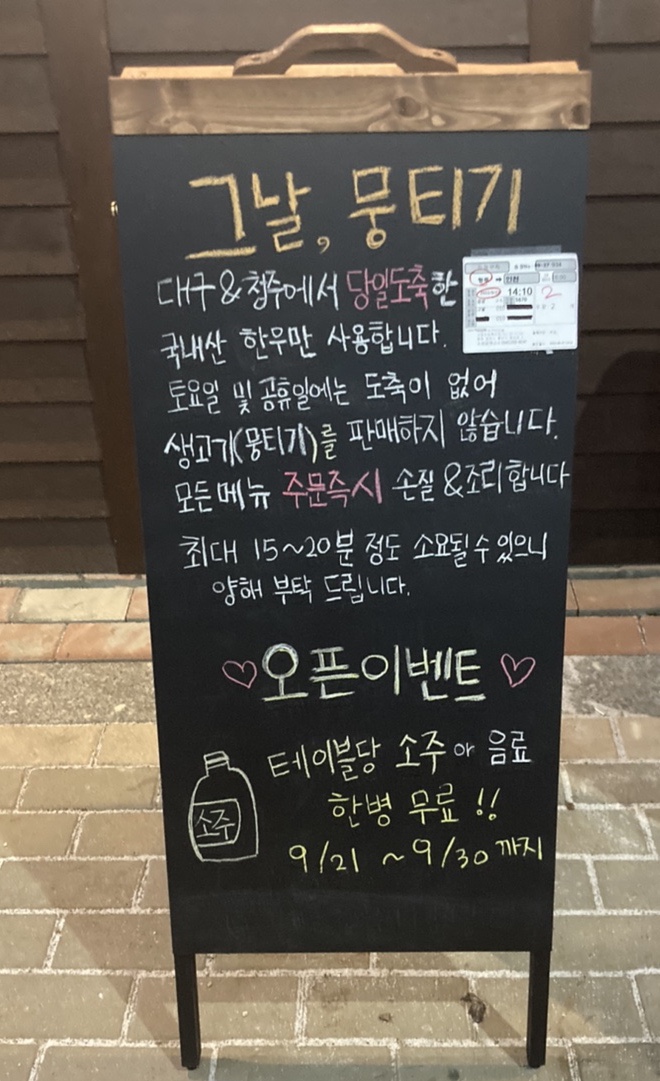 그날, 뭉티기
대구 & 청주에서 당일도축한
국내산 한우만 사용합니다.
토요일 및 공휴일에는 도축이 없어
생고기(뭉티기)를 판매하지 않습니다.
모든메뉴 주문즉시 손질 & 조리합니다
최대 15~20분 정도 소요될 수 있으니
양해 부탁 드립니다.
오픈이벤트
테이블당 소주 or 음료
한병 무료 !!
9/21 ~ 9/30 까지
소주
인천
14:10
2